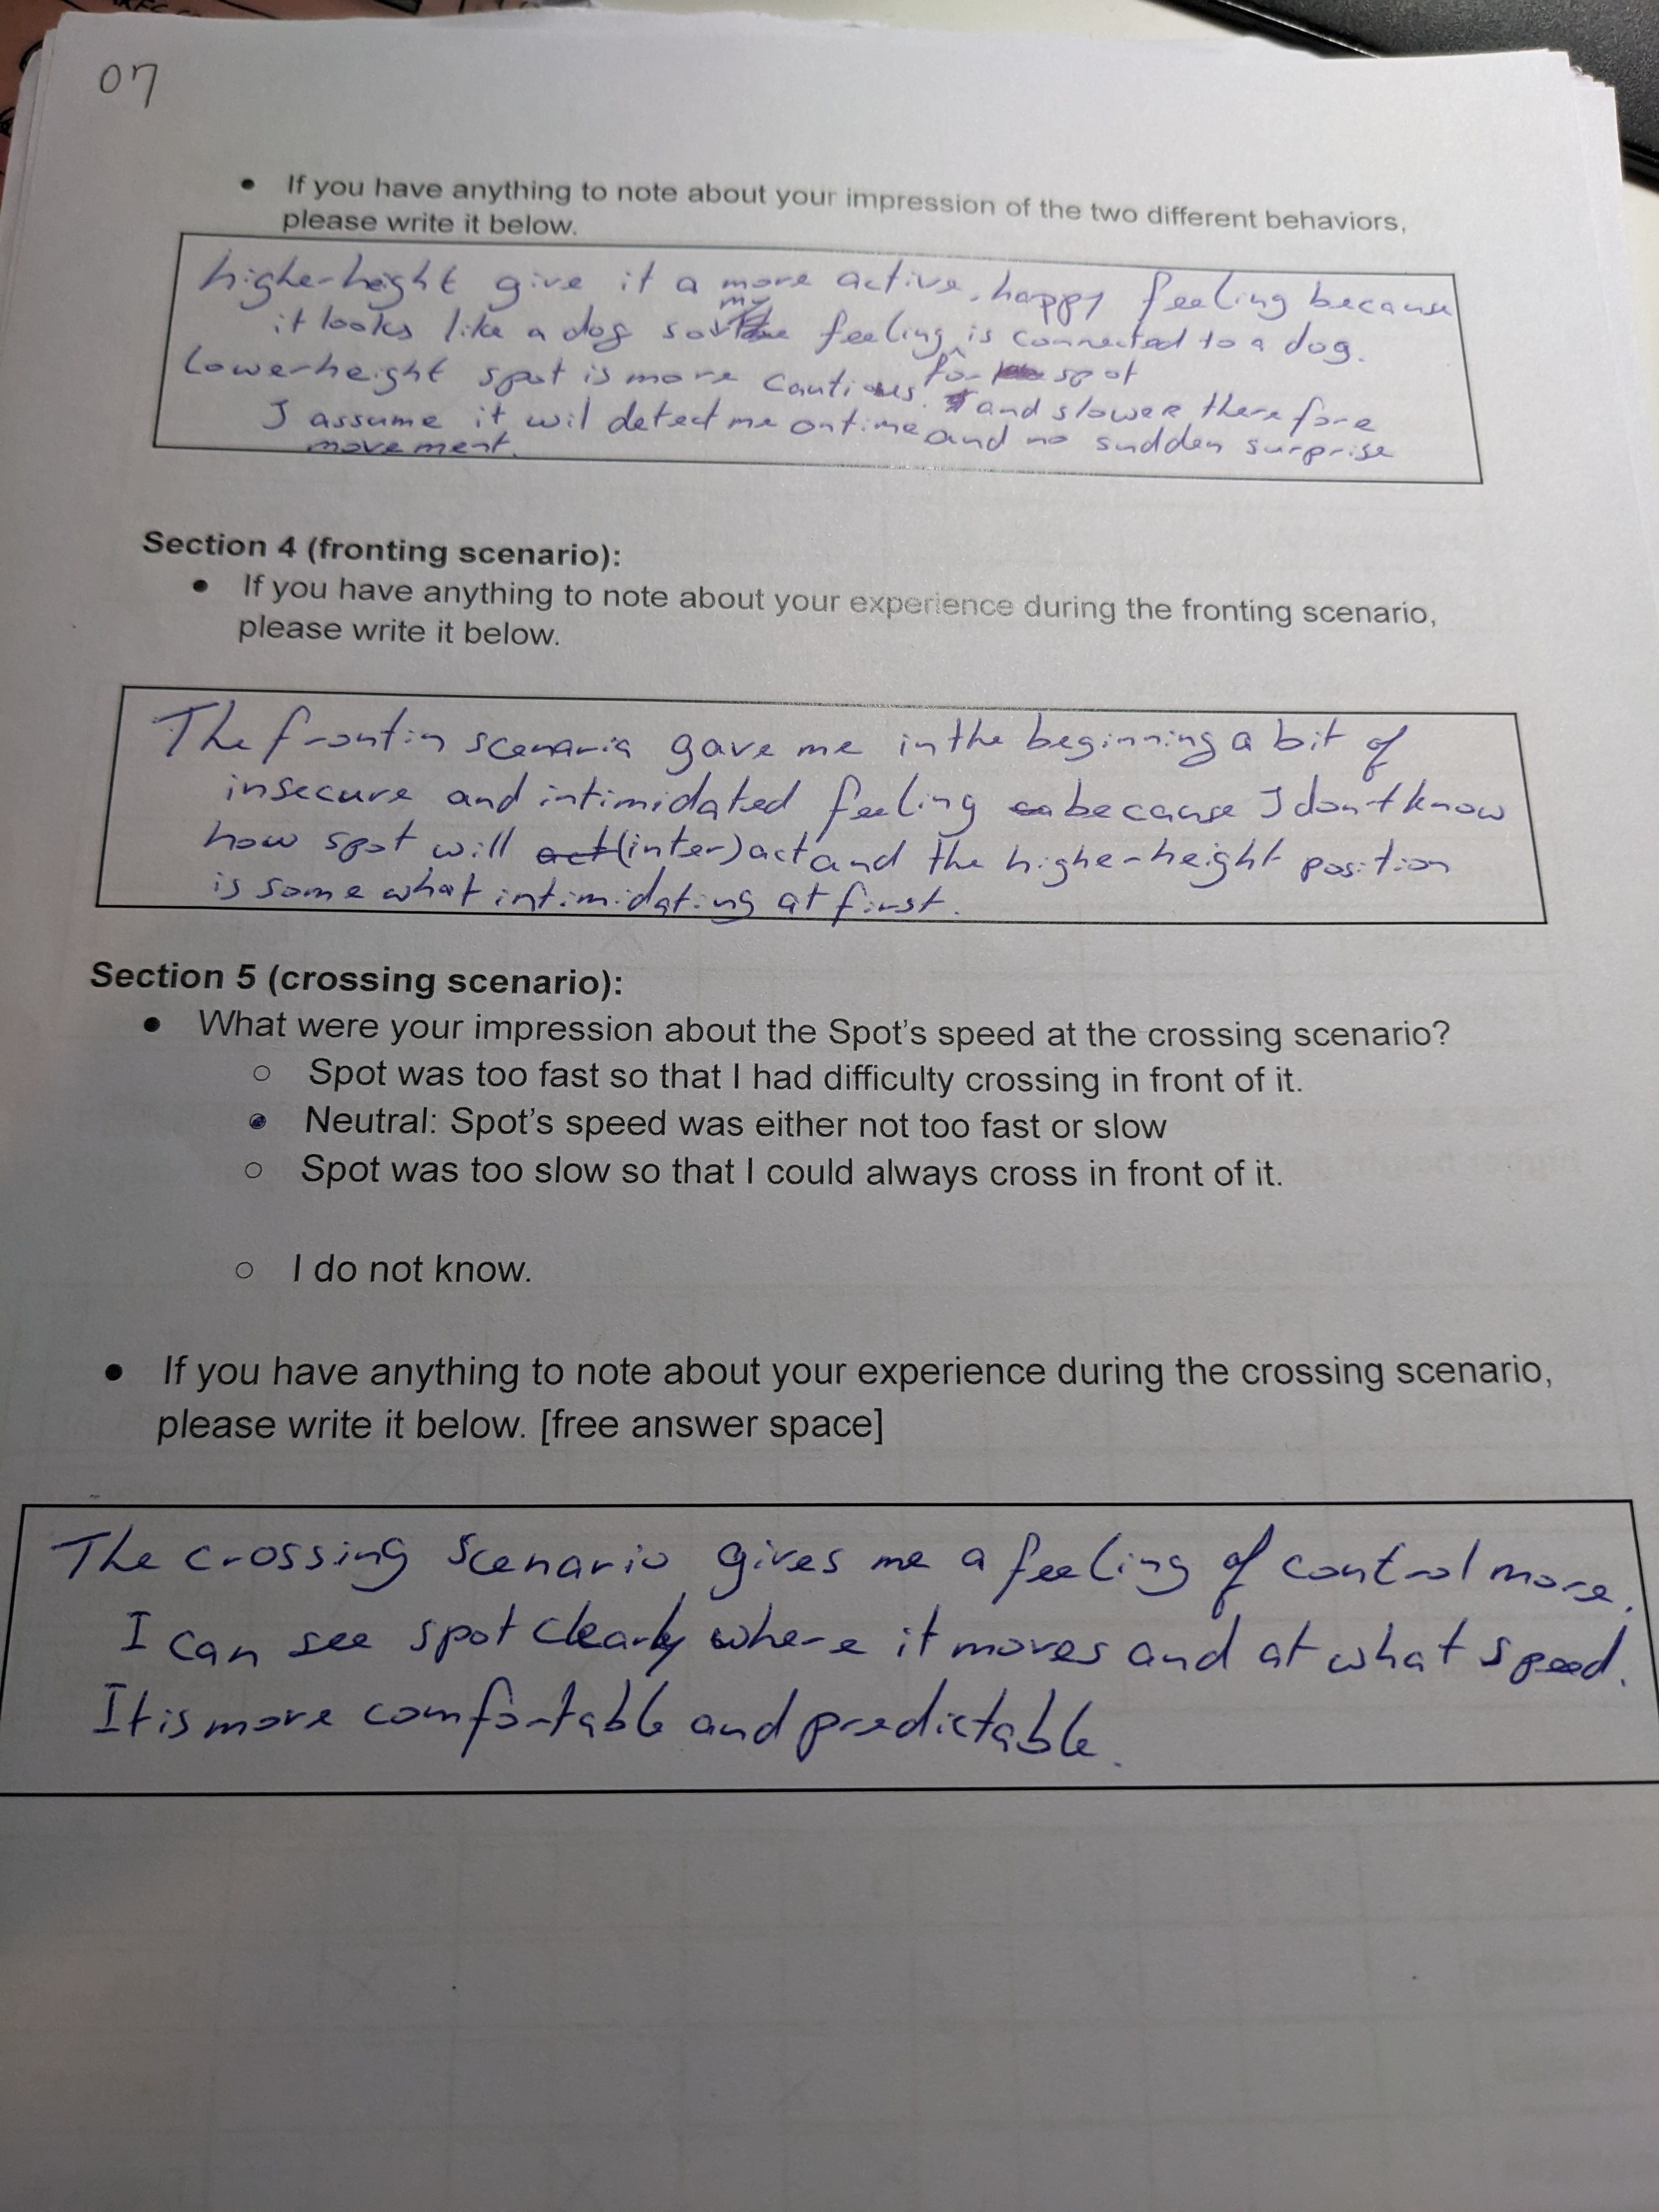 07
• If you have anything to note about your impression of the two different behaviors,
please write it below.
higher-height give it a more active, happy feeling because
it looks like a dog so my feeling for spot is connected to a dog.
Lower-height spot is more cautious. and slower therefore
I assume it wil detect me on time and no sudden surprise
movement.
Section 4 (fronting scenario):
• If you have anything to note about your experience during the fronting scenario,
please write it below.
The frontin scenario gave me in the beginning a bit of
insecure and intimidated feeling because I don't know
how spot will act (inter)act and the higher-height position
is some what intimidating at first.
Section 5 (crossing scenario):
• What were your impression about the Spot's speed at the crossing scenario?
○ Spot was too fast so that I had difficulty crossing in front of it.
● Neutral: Spot's speed was either not too fast or slow
○ Spot was too slow so that I could always cross in front of it.
○ I do not know.
• If you have anything to note about your experience during the crossing scenario,
please write it below. [free answer space]
The crossing scenario gives me a feeling of control more.
I can see spot clearly where it moves and at what speed.
It is more comfortable and predictable.